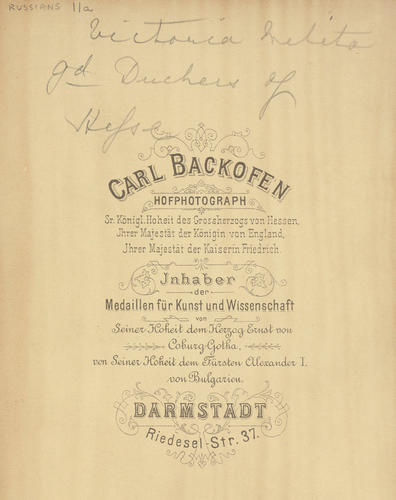 RUSSIANS 11a
Victoria Melita
gd Duchess of
Hesse
CARL BACKOFEN
HOFPHOTOGRAPH
Sr. Königl. Hoheit des Grossherzogs von Hessen,
Jhrer Majestät der Königin von England,
Jhrer Majestät der Kaiserin Friedrich.
Jnhaber
der
Medaillen für Kunst und Wissenschaft
von
Seiner Hoheit dem Herzog Ernst von
Coburg-Gotha,
von Seiner Hoheit dem Fürsten Alexander I.
von Bulgarien.
DARMSTADT
Riedesel-Str. 37.